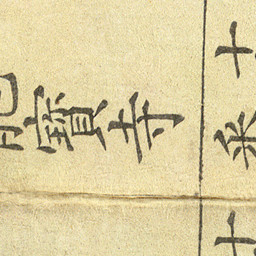 寶寺
十条
十